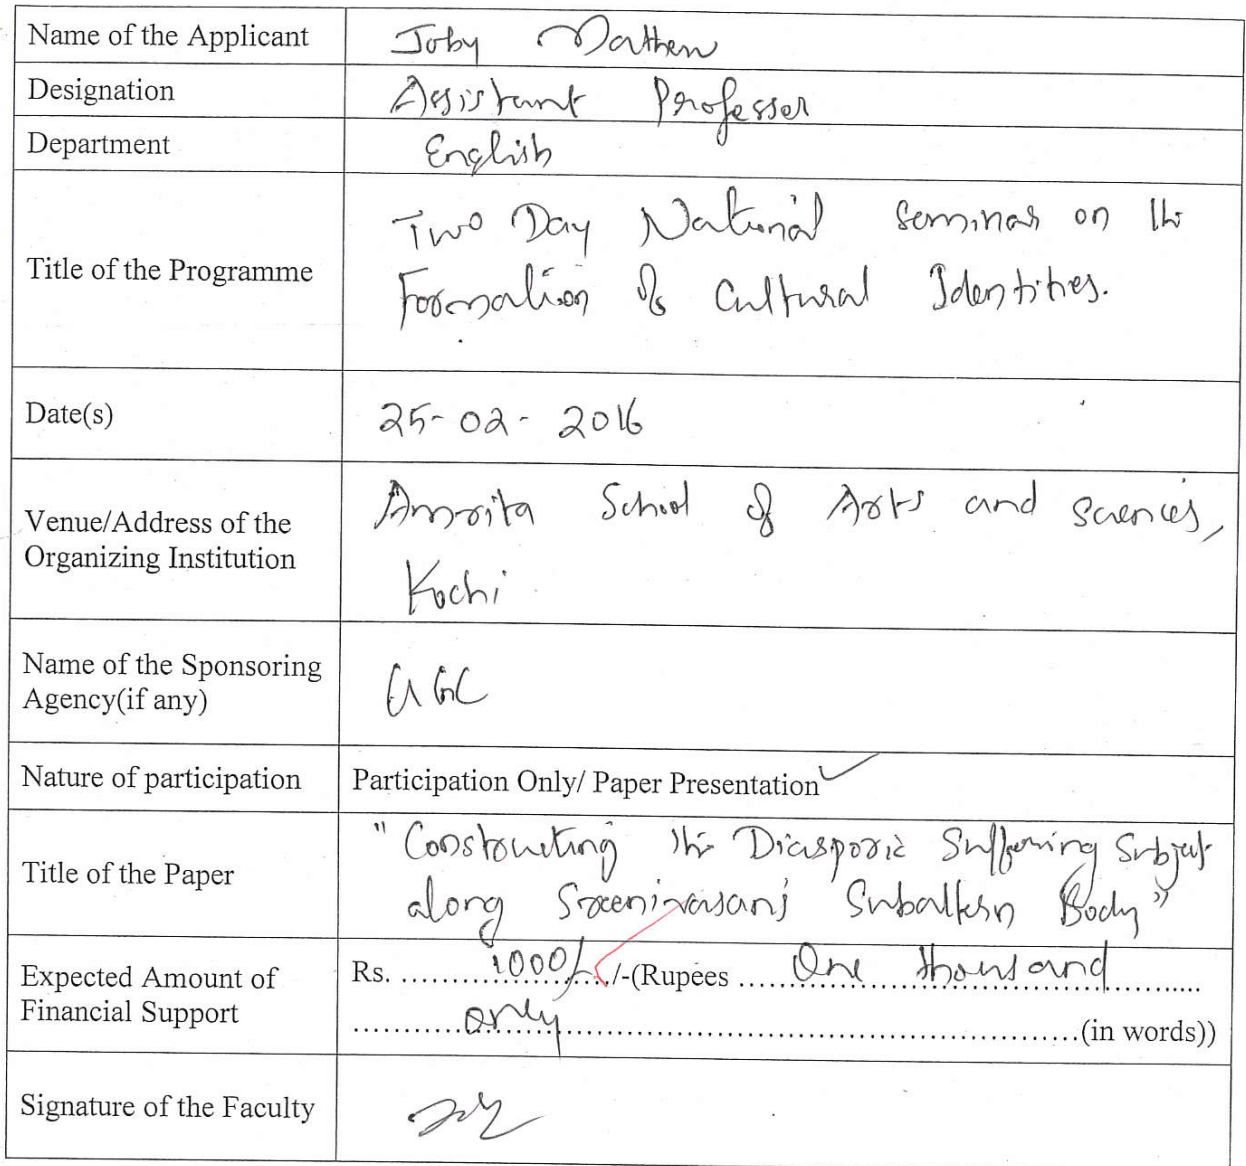 Name of the Applicant Joby Mathew
Designation Assistant Professor
Department English
Title of the Programme Two Day National Seminar on the
Formation of Cultural Identities.
Date(s) 25-02-2016
Venue/Address of the
Organizing Institution Amrita School of Arts and Sciences,
Kochi
Name of the Sponsoring
Agency(if any) UGC
Nature of participation Participation Only/ Paper Presentation ✓
Title of the Paper "Constructing the Diasporic Suffering Subject
along Sreenivasan's Subaltern Body"
Expected Amount of
Financial Support Rs. ......1000/-....../-(Rupees ...One thousand......
......only......(in words))
Signature of the Faculty